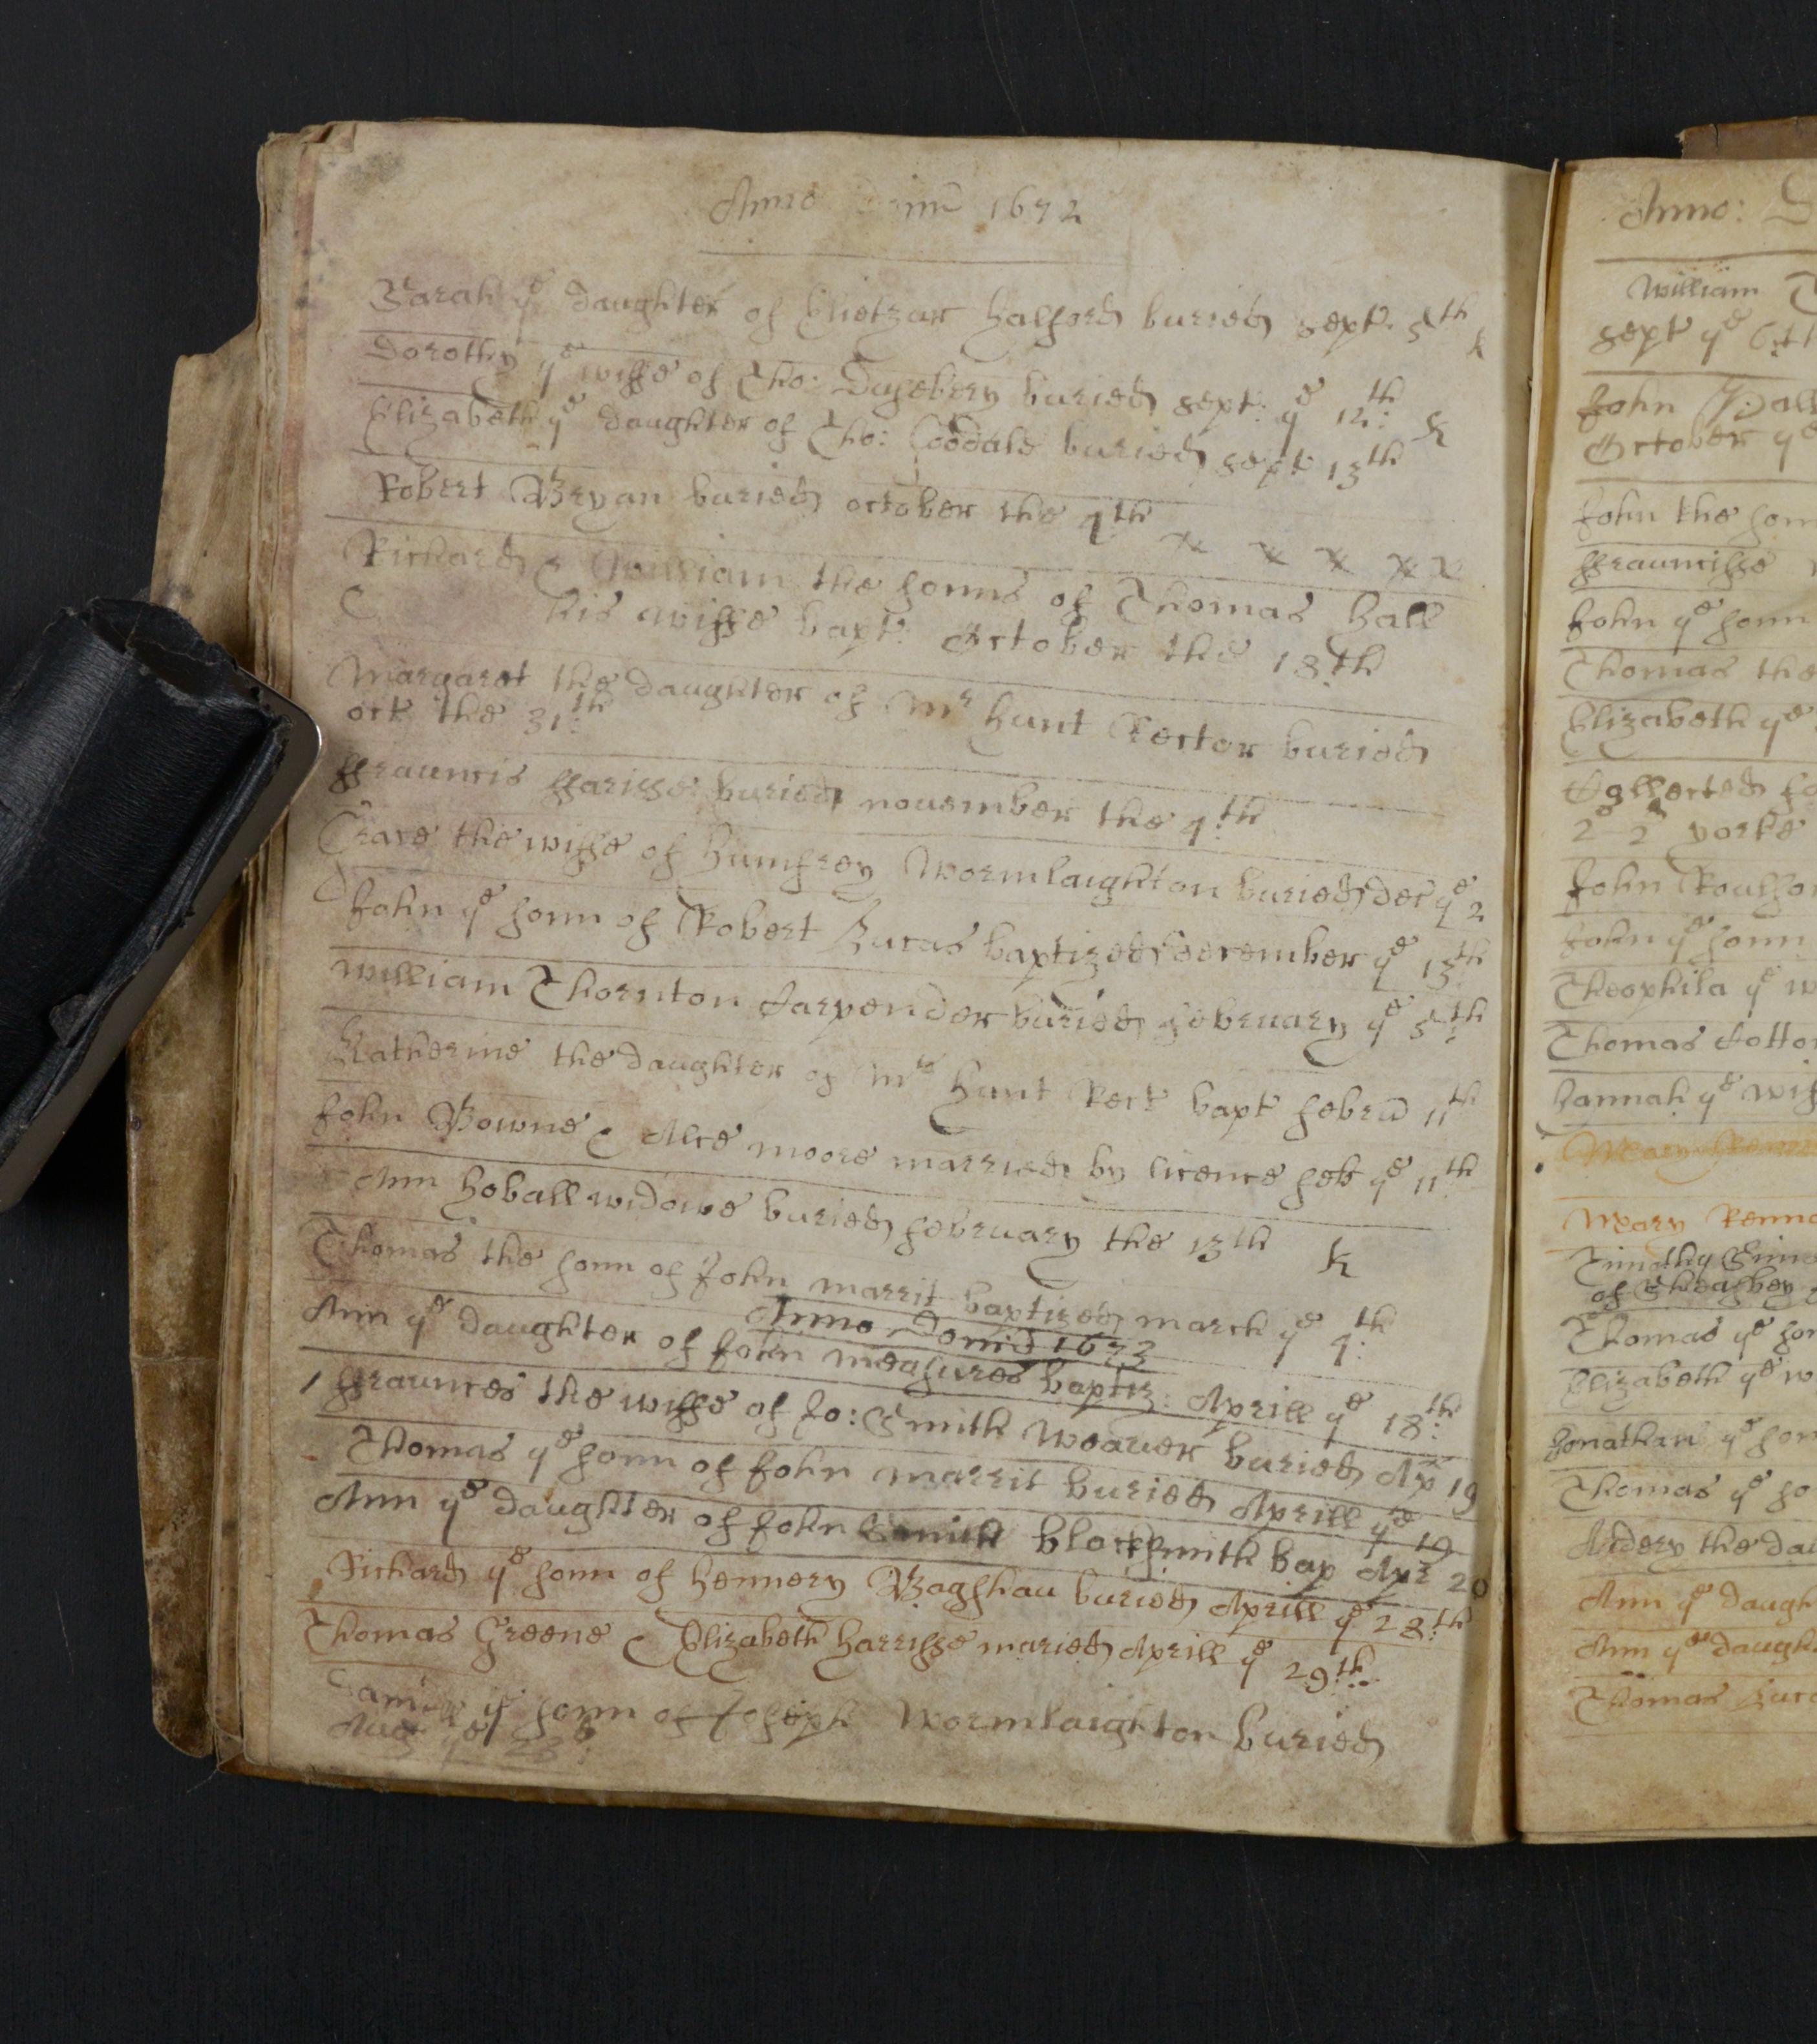 Anno 1672
Sarah ye daughter of Elietzar Halford buried sept. 5th
Dorothy ye wiffe of Tho: buried sept: ye 12th: k
Elizabeth ye daughter of Tho: Coodale buried sept 13th
Robert Bryan buried october the 4th x x x x x
Richard & William the sonns of Thomas Hall
& his wiffe bapt: October the 18th
Margaret the daughter of Mr Hunt Rector buried
oct the 31th
ffrauncis buried nouember the 4th
Grace the wiffe of Humfrey Wormlaighton buried dec ye 2
John ye sonn of Robert Lucas baptized december ye 13th
William Thornton Carpender buried february ye 5th
Katherine the daughter of Mr Hunt Rect bapt febru 11th
John Bowne & Alce moore married by licence feb ye 11th
Ann Hoball widowe buried february the 13th k
Thomas the sonn of John marrit baptized march ye 4th
Anno Domi 1673
Ann ye daughter of John measures baptiz: Aprill ye 18th
ffraunces the wiffe of Jo: Smith Weauer buried Ap 19
Thomas ye sonn of John marrit buried Aprill ye 19
Ann ye daughter of John Smith blacksmith bap Apr 20
Richard ye sonn of Hennery Bagshau buried Aprill ye 28th
Thomas Greene & Elizabeth Harrisse maried Aprill ye 29th
ye sonn of Joseph Wormlaighton buried
Aug ye 28
Anno:
William
sept ye 6th
John
October ye
John the sonn
ffrauncisse
John ye sonn
Thomas the
Elizabeth ye
Collected fo
2s 2d
John
John ye sonn
Theophila ye w
Thomas Cotto
Hannah ye wif
Mary
Timothy
of
Thomas ye son
Elizabeth ye w
Jonathan ye son
Thomas ye so
the dau
Ann ye daugh
Ann ye daugh
Thomas Luca